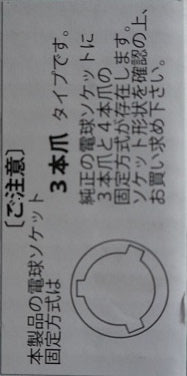 〔ご注意〕
本製品の電球ソケット
固定方式は
3本爪 タイプです。
純正の電球ソケットに
3本爪と4本爪の
固定方式が存在します。
ソケット形状を確認の上、
お買い求め下さい。